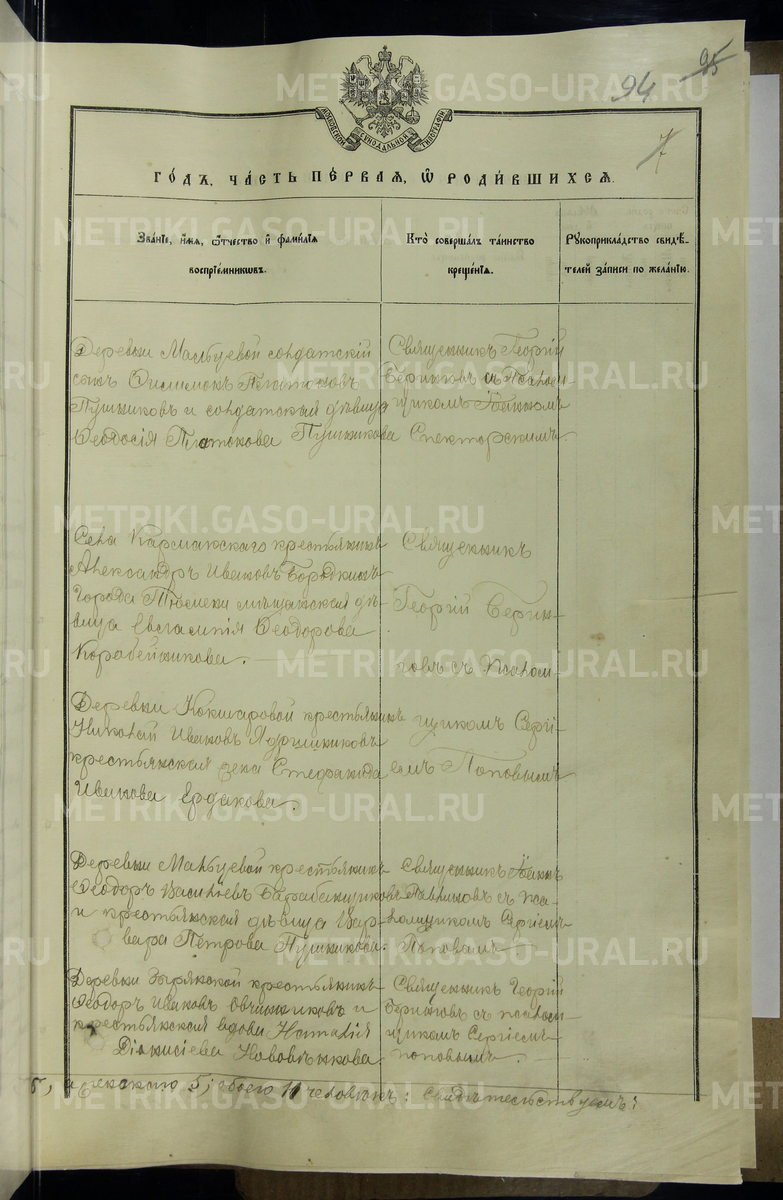 95
94
7
МОСКОВСКОЙ СѴНОДАЛЬНОЙ ТИПОГРАФІИ
ГОДЪ, ЧАСТЬ ПЕРВАЯ, Ѡ РОДИВШИХСЯ.
Званіе, имя, ѿчество и фамилія
воспріемникѡвъ.
Кто совершалъ таинство
крещенія.
Рукоприкладство свидѣ-
телей записи по желанію.
Деревни Мальцевой солдатскій
сынъ Филимонъ Платоновъ
Пушниковъ и солдатская дѣвица
Ѳеодосія Платонова Пушникова
Священникъ Георгій
Серинговъ съ Псалом-
щикомъ Іоанномъ
Спекторскимъ
Села Кармакскаго крестьянинъ
Александръ Ивановъ Бородкинъ
Города Тюмени мѣщанская дѣ-
вица Евгампія Ѳеодорова
Коробейникова.
Священникъ
Георгій Серин-
говъ съ Псалом-
щикомъ Сергі-
емъ Поповымъ
Деревни Кокшаровой крестьянинъ
Николай Ивановъ Ядрышниковъ
крестьянская жена Стефанида
Иванова Ердакова.
Деревни Мальцевой крестьянинъ
Ѳеодоръ Васильевъ Барабанщиковъ
и крестьянская дѣвица Вар-
вара Петрова Пушникова.
Священникъ Іоаннъ
съ пса-
ломщикомъ Сергіемъ
Поповымъ
Деревни Зырянской крестьянинъ
Ѳеодоръ Ивановъ Овчинниковъ и
крестьянская вдова Наталія
Діонисіева
Священникъ Георгій
Серинговъ съ псалом-
щикомъ Сергіемъ
поповымъ.
6, а женскаго 5; обоего 11 человѣкъ: свидѣтельствуемъ:
METRIKI.GASO-URAL.RU